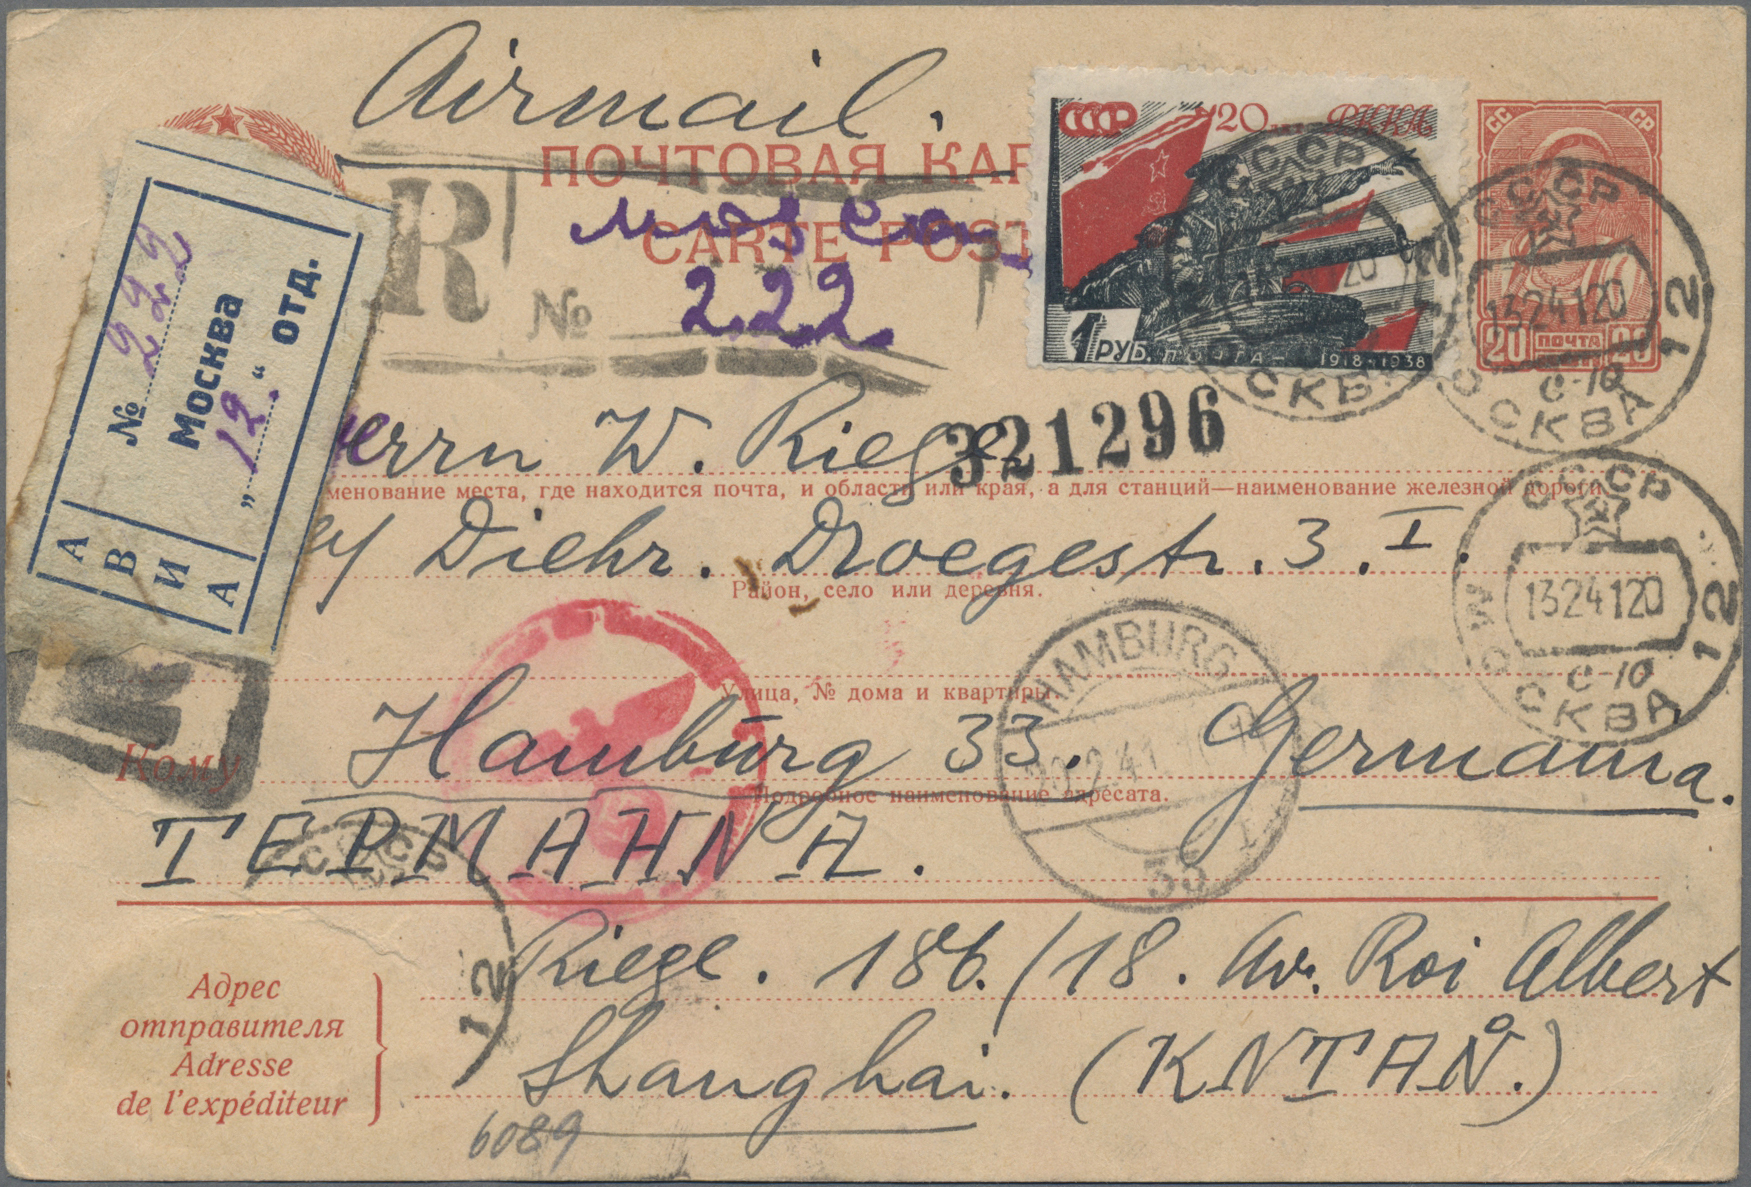 Airmail.
ПОЧТОВАЯ КАР
CARTE POST
R
№ 222
№ 222
Москва
„12“ отд.
АВИА
СССР 20 лет РККА
1 РУБ. ПОЧТА 1918-1938
СС СР
20 ПОЧТА 20
СССР
МОСКВА 12
СССР
13241120
МОСКВА 12
С-10
СССР
13241120
МОСКВА 12
С-10
errn W. Riege
321296
менование места, где находится почта, и области или края, а для станций—наименование железной дороги.
Diehr. Droegestr. 3. I.
Район, село или деревня.
Улица, № дома и квартиры.
HAMBURG
33
Кому
Hamburg 33. Germania.
Подробное наименование адресата.
ГЕРМАНИА.
СССР
12
Адрес
отправителя
Adresse
de l'expéditeur
Riege. 186./18. Av. Roi Albert
Shanghai. (KNTAŇ.)
6089